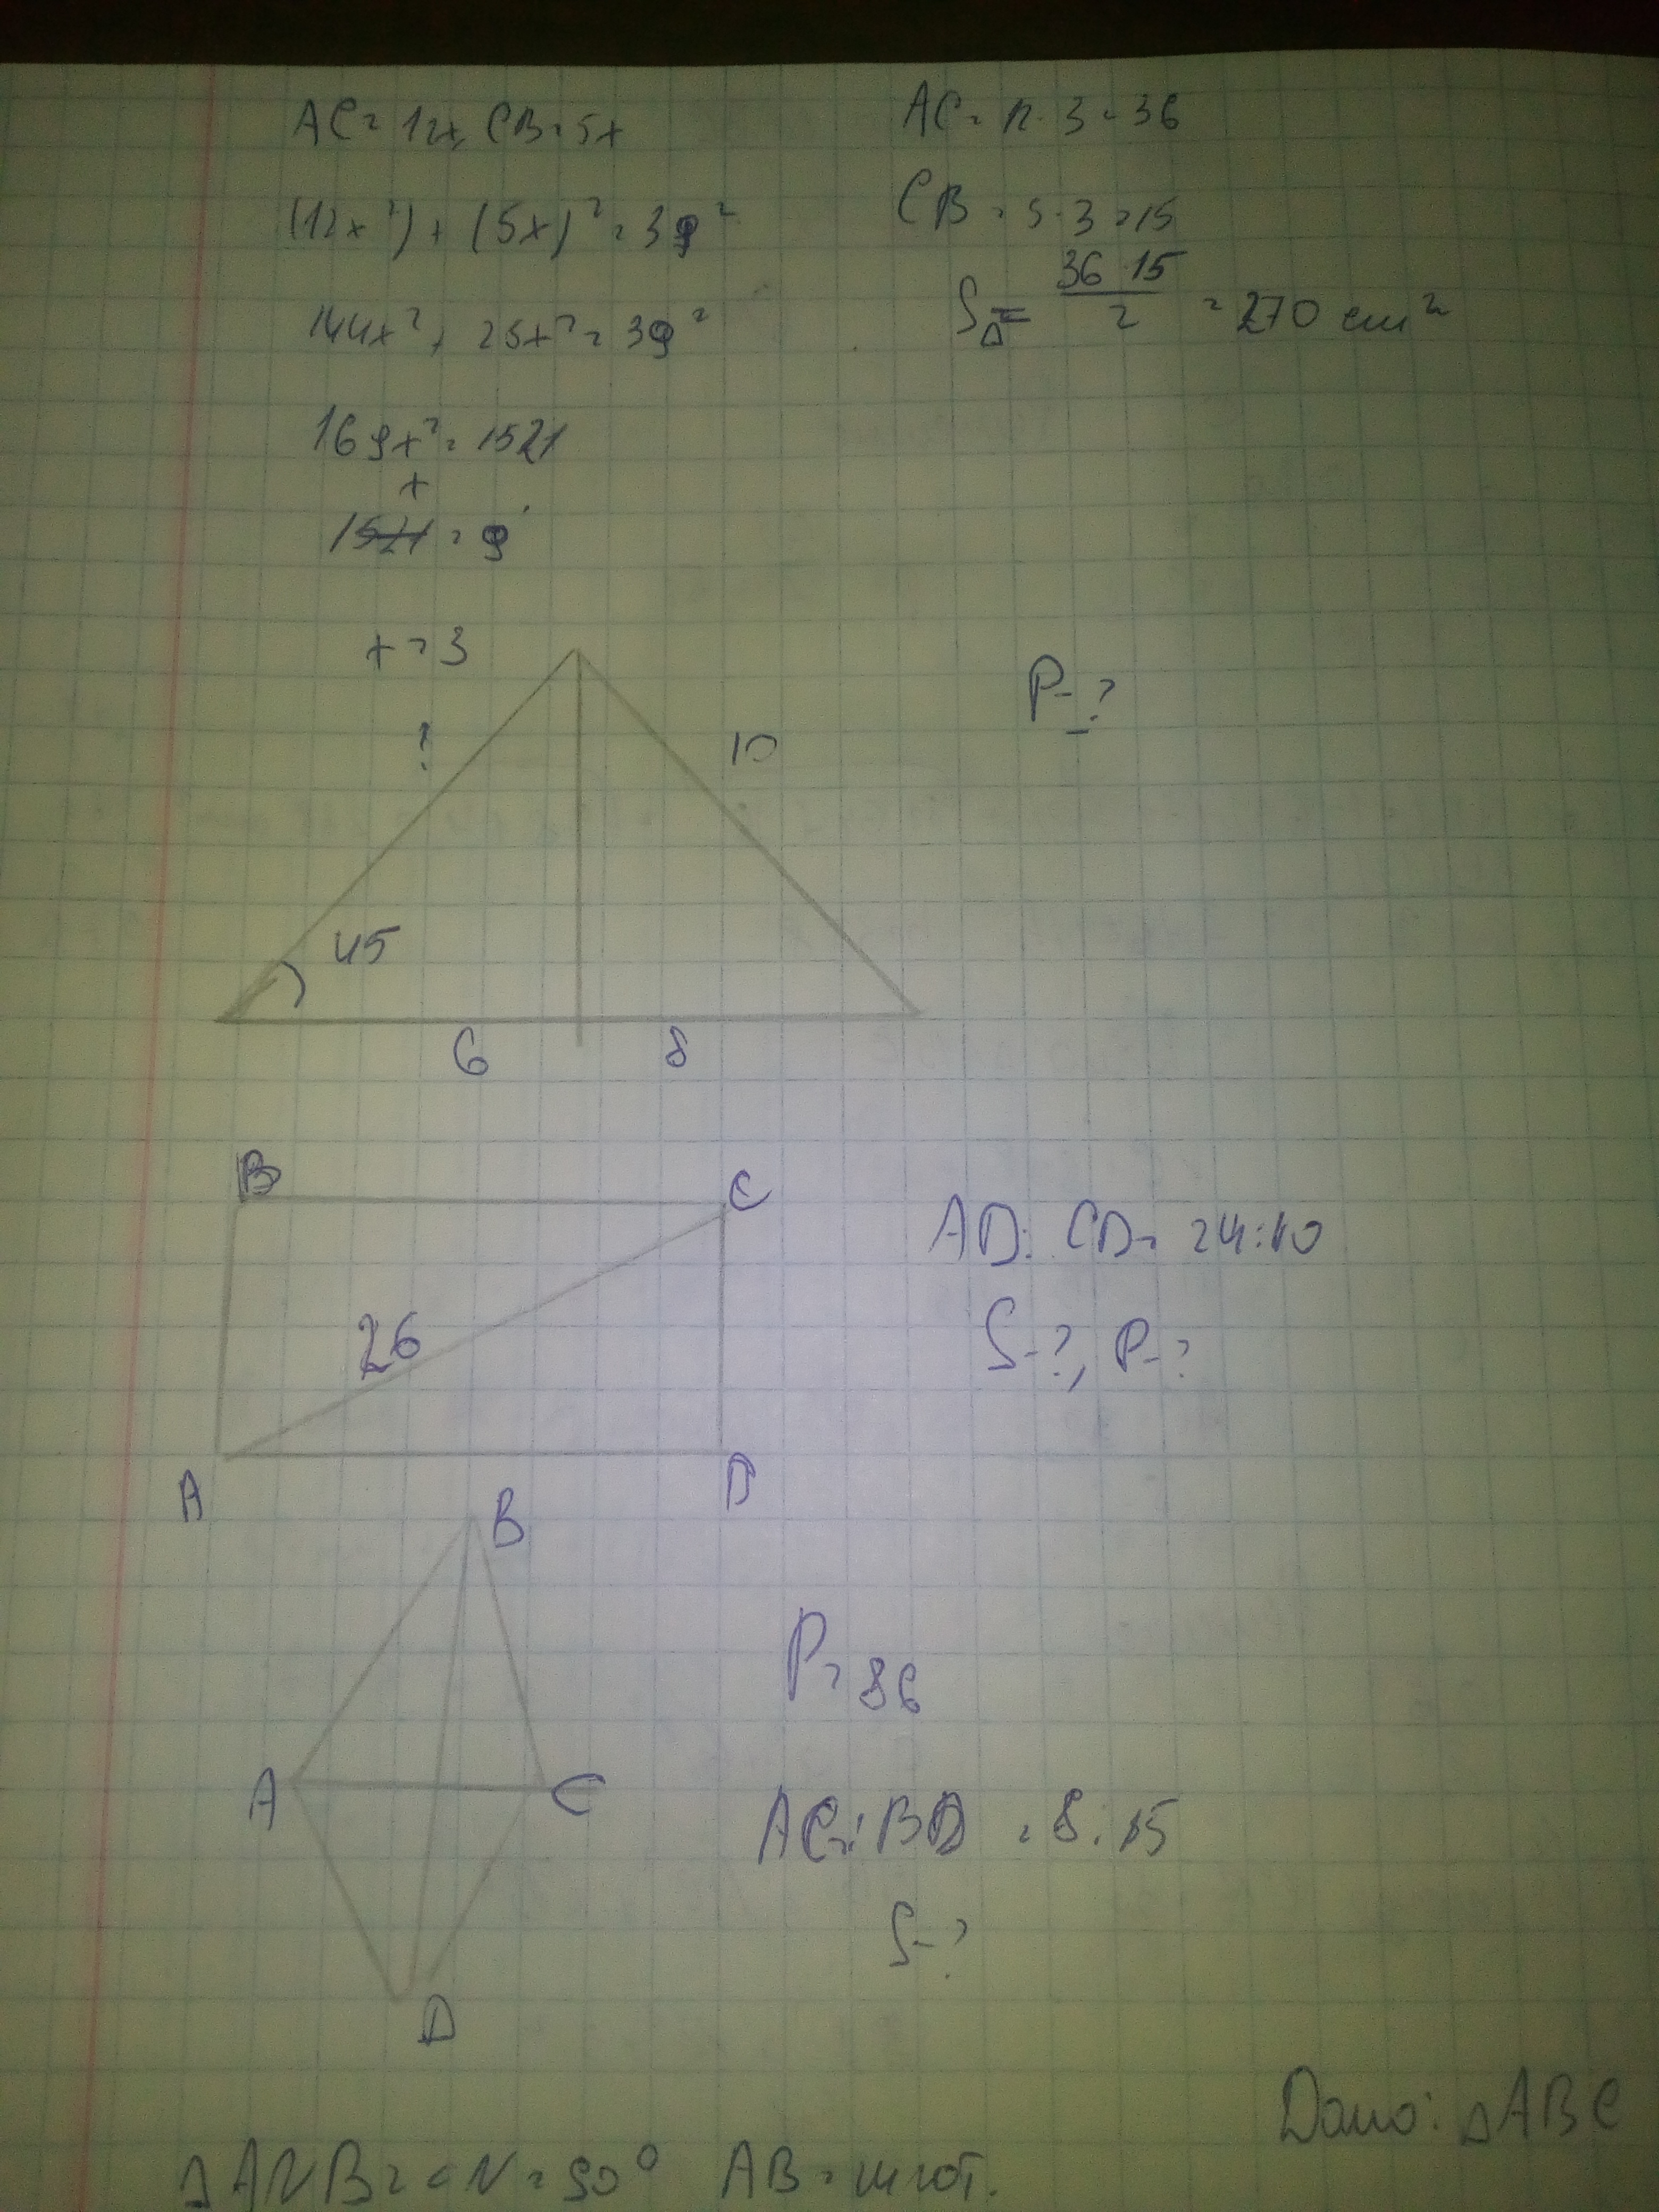 AC = 12x, CB = 5x
(12x²) + (5x)² = 39²
144x² + 25x² = 39²
169x² = 1521
x
1521 = 9
x = 3
AC = 12 · 3 = 36
CB = 5 · 3 = 15
S△ = 36 · 15 / 2 = 270 cm²
?
10
P - ?
45
6
8
B
C
26
AD : CD = 24 : 10
S - ?, P - ?
A
D
B
P = 86
A
C
AC : BD = 8 : 15
S - ?
D
Дано: △ABC
△ANB = < N = 90° AB = гипот.